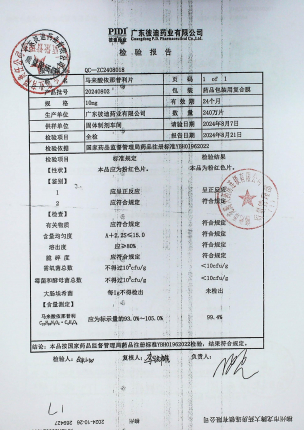 PIDI 广东彼迪药业有限公司
Guangdong P.D. Pharmaceutical Co.,Ltd.
检 验 报 告
QC-ZC2408018
品 名 马来酸依那普利片 页 码 1 of 1
批 号 20240802 包 装 药品包装用复合膜
规 格 10mg 有 效 期 24个月
生产单位 广东彼迪药业有限公司 数 量 240万片
供样单位 固体制剂车间 请验日期 2024年8月7日
检验项目 全检 报告日期 2024年8月21日
检验依据 国家药品监督管理局药品注册标准YBH01962022
检验项目 标准规定 检验结果
【性状】 本品应为粉红色片。 本品为粉红色片。
【鉴别】
1 应呈正反应 呈正反应
2 应符合规定 符合规定
【检查】
有关物质 应符合规定 符合规定
含量均匀度 A+2.2S≤15.0 符合规定
溶出度 应≥80% 符合规定
脆碎度 应符合规定 符合规定
需氧菌总数 不得过10³cfu/g <10cfu/g
霉菌和酵母菌总数 不得过10²cfu/g <10cfu/g
大肠埃希菌 每1g不得检出 未检出
【含量测定】
马来酸依那普利 应为标示量的93.0%~105.0% 99.4%
结论:本品按国家药品监督管理局药品注册标准YBH01962022检验,结果符合规定。
检验人: 复核人: 负责人:
2024-10-26